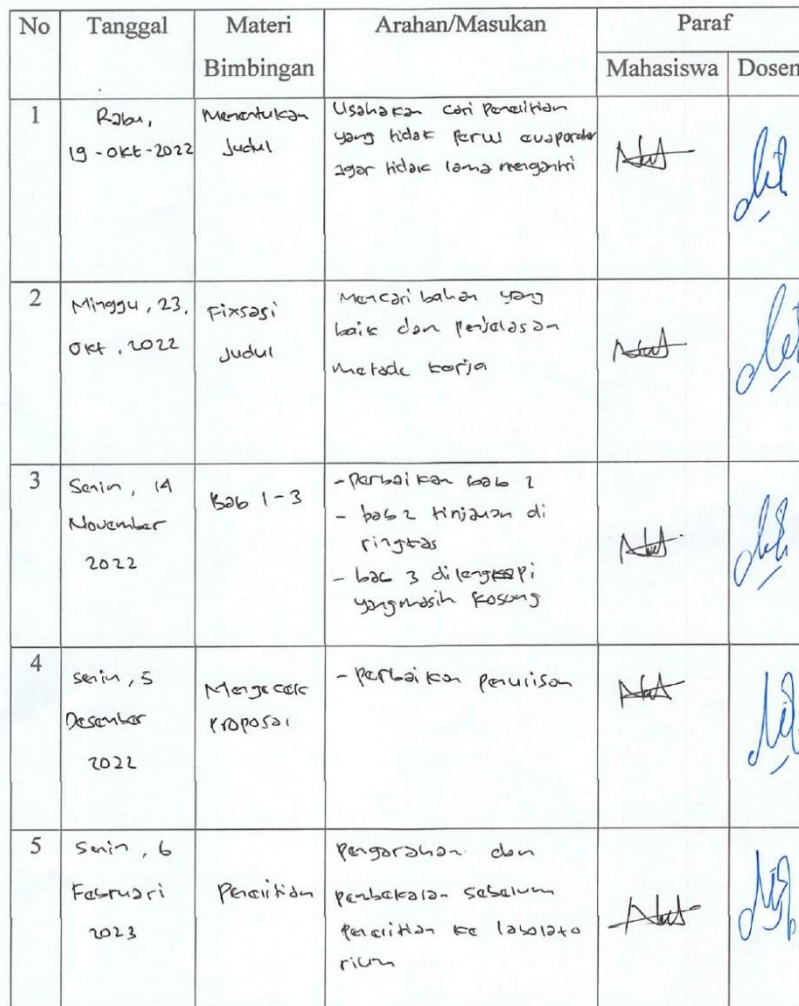 No Tanggal Materi Bimbingan Arahan/Masukan Paraf
Mahasiswa Dosen
1 Rabu, 19 - Okt - 2022
Menentukan Judul
Usahakan cari Penelitian
yang tidak Perlu evaporator
agar tidak lama mengantri
2 Minggu, 23, Okt, 2022
Fixsasi Judul
Mencari bahan yang
baik dan penjelasan
metode kerja
3 Senin, 14 November 2022
Bab 1-3
- Perbaikan bab 1
- bab 2 tinjauan di
ringkas
- bab 3 dilengkapi
yang masih kosong
4 Senin, 5 Desember 2022
Mengecek Proposal
- Perbaikan Penulisan
5 Senin, 6 Februari 2023
Penelitian
Pengarahan dan
pembekalan sebelum
Penelitian ke labolato
rium